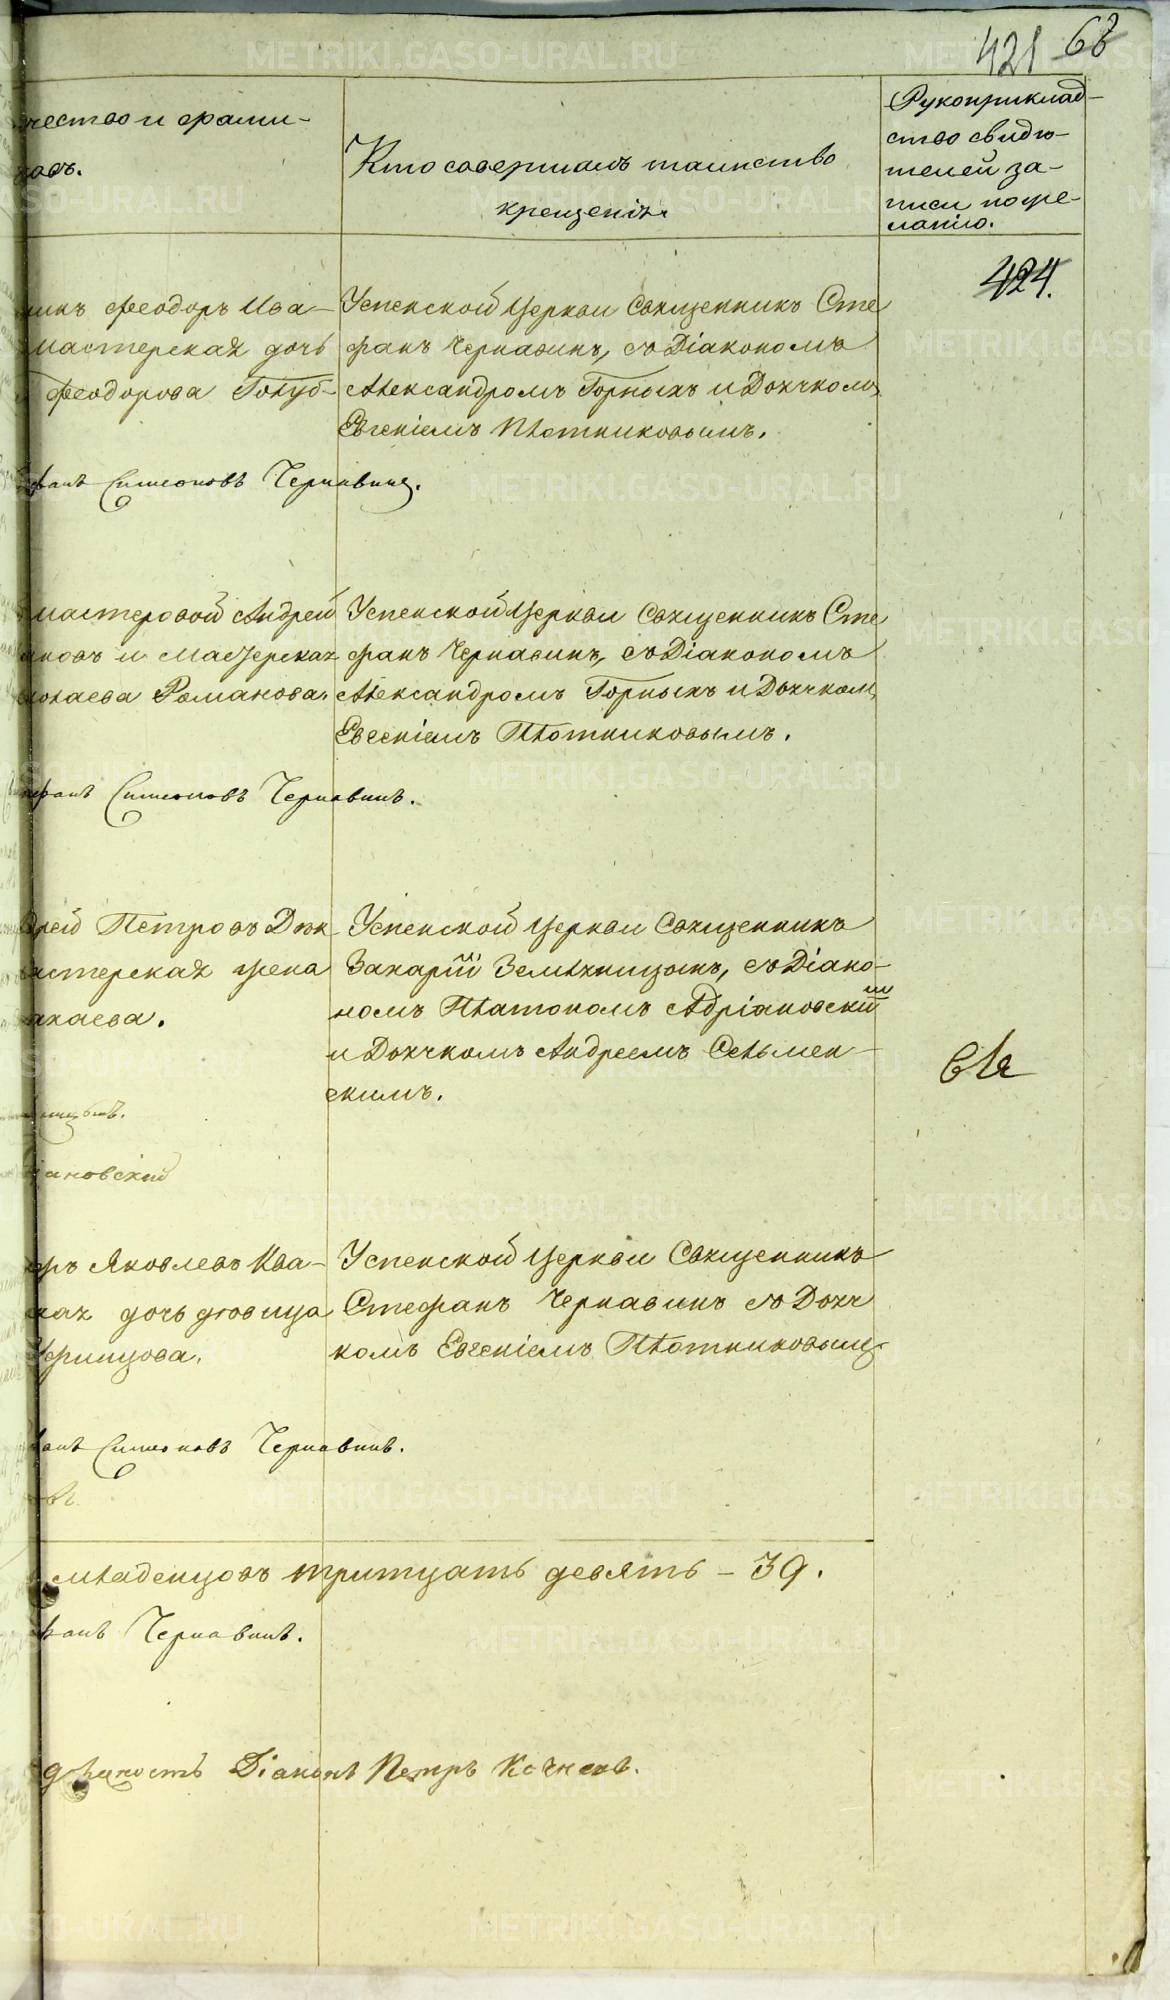 421 68
чество и фами-
Кто совершалъ таинство
крещенія.
Рукоприклад-
ство свидѣ-
телей за-
писи по же-
ланію.
424.
никъ Феодоръ Ива-
мастерская дочь
Феодорова Голуб-
Успенской Церкви Священникъ Сте
фанъ Чернавинъ, съ Діакономъ
Александромъ Горныхъ и Дьячкомъ
Евгеніемъ Плотниковымъ.
фанъ Симеоновъ Чернавинъ.
мастеровой Андрей
ановъ и Мастерская
колаева Романова.
Успенской Церкви Священникъ Сте
фанъ Чернавинъ, съ Діакономъ
Александромъ Горныхъ и Дьячком
Евгеніемъ Плотниковымъ.
фанъ Симеоновъ Чернавинъ.
дрей Петровъ Дья
астерская жена
акаева.
Успенской Церкви Священникъ
Захарій Земляницынъ, съ Діако-
номъ Платономъ Адріановскимъ
и Дьячкомъ Андреемъ Сельмен-
скимъ.
ницынъ.
ановскій
ръ Яковлевъ Ква-
кая дочь дѣвица
Успенской Церкви Священникъ
Стефанъ Чернавинъ съ Дьяч
комъ Евгеніемъ Плотниковымъ
фанъ Симеоновъ Чернавинъ.
младенцовъ тритцать девять - 39.
фанъ Чернавинъ.
должность Діаконъ Петръ
METRIKI.GASO-URAL.RU